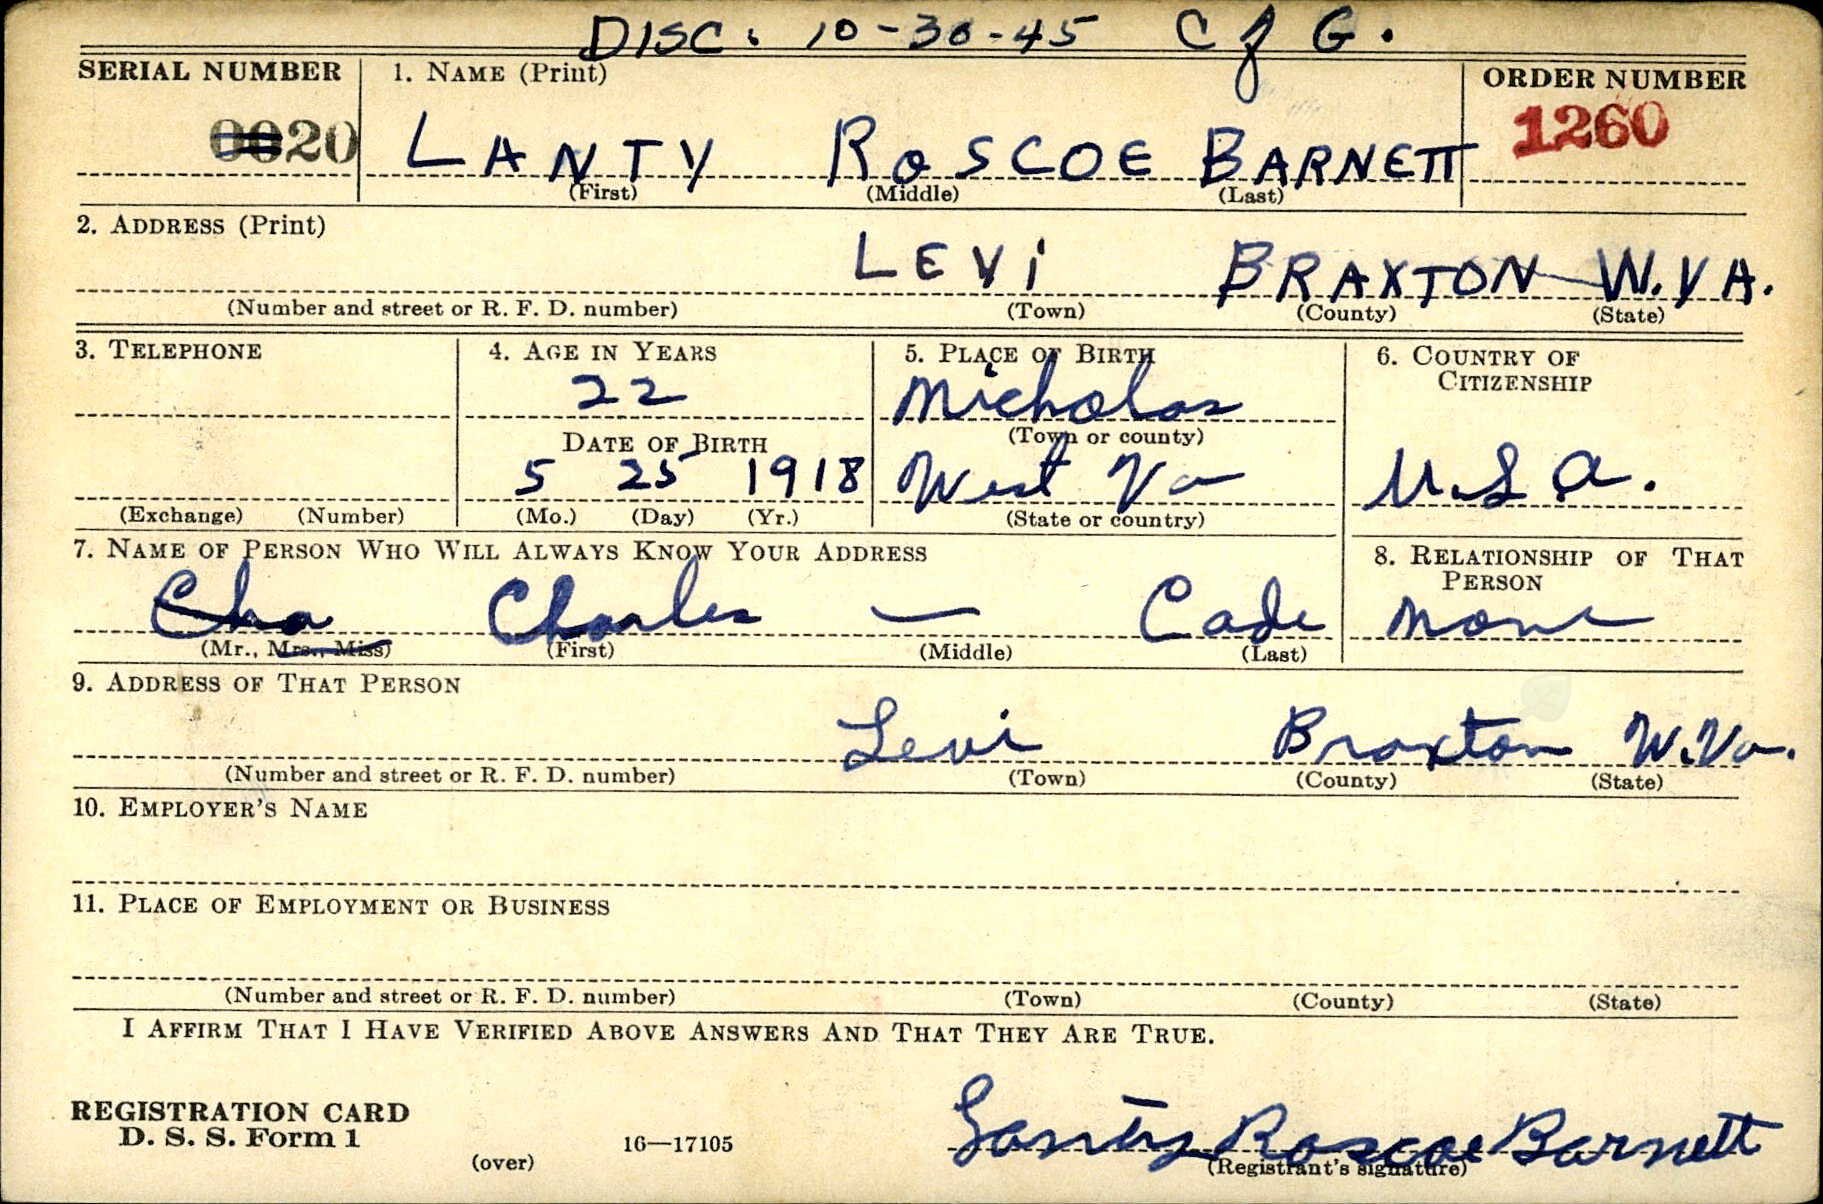 DISC. 10-30-45 C of G.
SERIAL NUMBER 1. NAME (Print) ORDER NUMBER
0020 LANTY ROSCOE BARNETT 1260
(First) (Middle) (Last)
2. ADDRESS (Print)
LEVI BRAXTON W.VA.
(Number and street or R. F. D. number) (Town) (County) (State)
3. TELEPHONE 4. AGE IN YEARS 5. PLACE OF BIRTH 6. COUNTRY OF
CITIZENSHIP
22 Nicholas
DATE OF BIRTH (Town or county)
5 25 1918 West Va U.S.A.
(Exchange) (Number) (Mo.) (Day) (Yr.) (State or country)
7. NAME OF PERSON WHO WILL ALWAYS KNOW YOUR ADDRESS 8. RELATIONSHIP OF THAT
PERSON
Cha Charles — Cade None
(Mr., Mrs., Miss) (First) (Middle) (Last)
9. ADDRESS OF THAT PERSON
Levi Braxton W.Va.
(Number and street or R. F. D. number) (Town) (County) (State)
10. EMPLOYER'S NAME
11. PLACE OF EMPLOYMENT OR BUSINESS
(Number and street or R. F. D. number) (Town) (County) (State)
I AFFIRM THAT I HAVE VERIFIED ABOVE ANSWERS AND THAT THEY ARE TRUE.
REGISTRATION CARD
D. S. S. Form 1 16—17105 Lanty Roscoe Barnett
(over) (Registrant's signature)